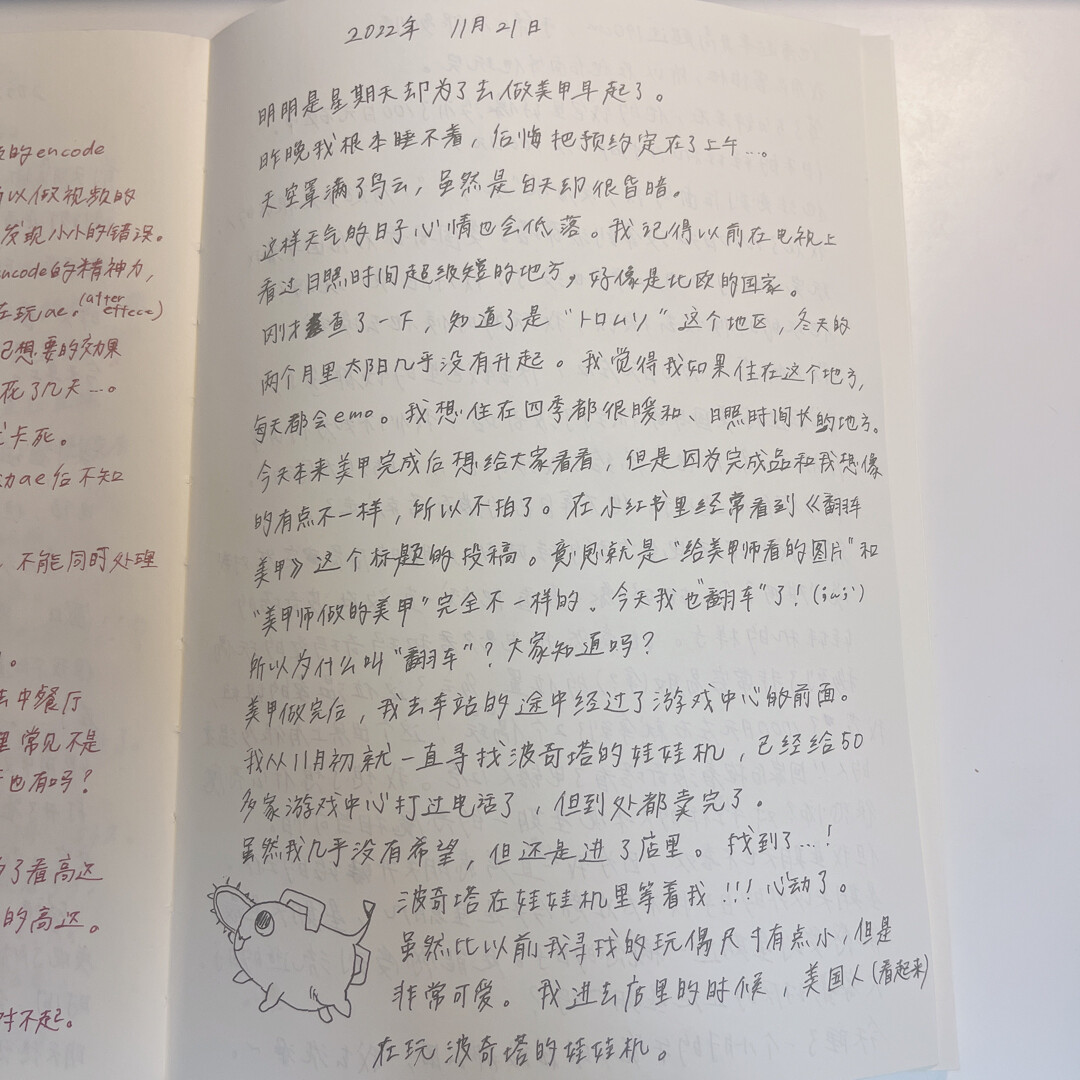 的encode
所以做视频的
发现小小的错误。
encode的精神力,
在玩ae。(after effect)
己想要的效果
花了几天…。
卡死。
动ae后不知
不能同时处理
。
去中餐厅
里常见不是
也有吗?
了看高达
的高达。
对不起。
2022年 11月21日
明明是星期天却为了去做美甲早起了。
昨晚我根本睡不着,后悔把预约定在了上午…。
天空罩满了乌云,虽然是白天却很昏暗。
这样天气的日子心情也会低落。我记得以前在电视上
看过日照时间超级短的地方,好像是北欧的国家。
刚才查了一下,知道了是“トロムソ”这个地区,冬天的
两个月里太阳几乎没有升起。我觉得我如果住在这个地方,
每天都会emo。我想住在四季都很暖和、日照时间长的地方。
今天本来美甲完成后想给大家看看,但是因为完成品和我想像
的有点不一样,所以不拍了。在小红书里经常看到《翻车
美甲》这个标题的投稿。意思就是“给美甲师看的图片”和
“美甲师做的美甲”完全不一样的。今天我也“翻车”了!(;ω;)
所以为什么叫“翻车”?大家知道吗?
美甲做完后,我去车站的途中经过了游戏中心的前面。
我从11月初就一直寻找波奇塔的娃娃机,已经给50
多家游戏中心打过电话了,但到处都卖完了。
虽然我几乎没有希望,但还是进了店里。找到了…!
波奇塔在娃娃机里等着我!!!心动了。
虽然比以前我寻找的玩偶尺寸有点小,但是
非常可爱。我进去店里的时候,美国人(看起来)
在玩波奇塔的娃娃机。